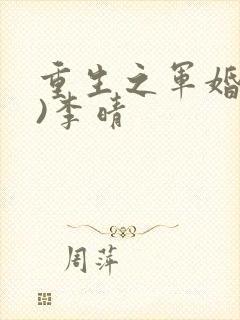 重生之军婚
)李晴
周萍